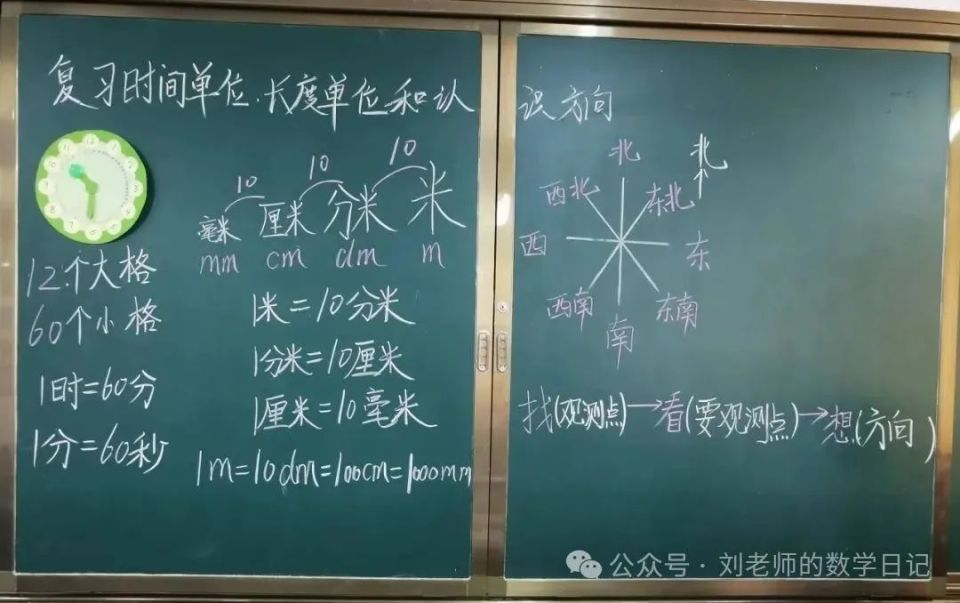 复习时间单位、长度单位和认识方向
10 10 10
毫米 厘米 分米 米
mm cm dm m
12个大格
60个小格
1时=60分
1分=60秒
1米=10分米
1分米=10厘米
1厘米=10毫米
1m=10dm=100cm=1000mm
北 北
西北 东北
西 东
西南 东南
南
找(观测点)→看(要观测点)→想(方向)
公众号·刘老师的数学日记